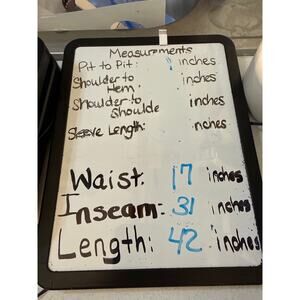 Measurements
Pit to Pit: inches
Shoulder to
Hem: inches
Shoulder to
Shoulde inches
Sleeve Length: nches
Waist: 17 inches
Inseam: 31 inches
Length: 42 inches